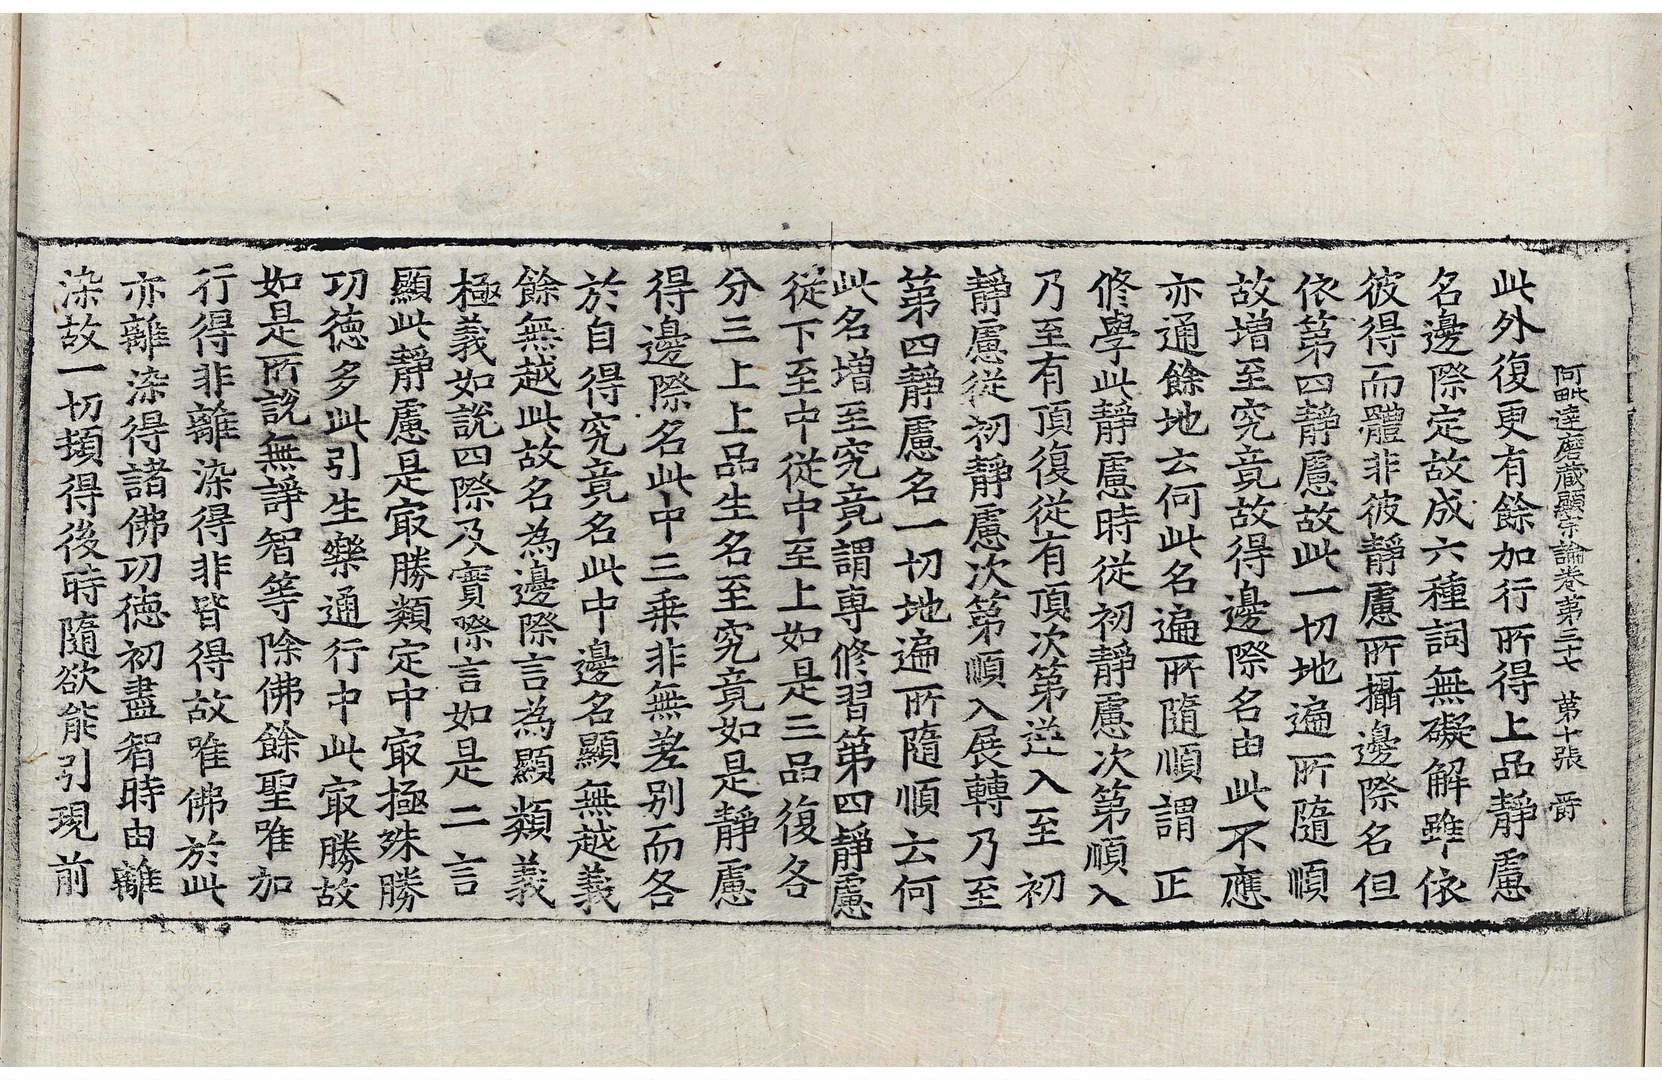 阿毗達磨藏顯宗論卷第三十七 第十張 爵
此外復更有餘加行所得上品靜慮
名邊際定故成六種詞無礙解雖依
彼得而體非彼靜慮所攝邊際名但
依第四靜慮故此一切地遍所隨順
故增至究竟故得邊際名由此不應
亦通餘地云何此名遍所隨順謂正
修學此靜慮時從初靜慮次第順入
乃至有頂復從有頂次第逆入至初
靜慮從初靜慮次第順入展轉乃至
第四靜慮名一切地遍所隨順云何
此名增至究竟謂專修習第四靜慮
從下至中從中至上如是三品復各
分三上上品生名至究竟如是靜慮
得邊際名此中三乘非無差別而各
於自得究竟名此中邊名顯無越義
餘無越此故名為邊際言為顯類義
極義如說四際及實際言如是二言
顯此靜慮是㝡勝類定中㝡極殊勝
功德多此引生樂通行中此㝡勝故
如是所說無諍智等除佛餘聖唯加
行得非離染得非皆得故唯佛於此
亦離染得諸佛功德初盡智時由離
染故一切頓得後時隨欲能引現前